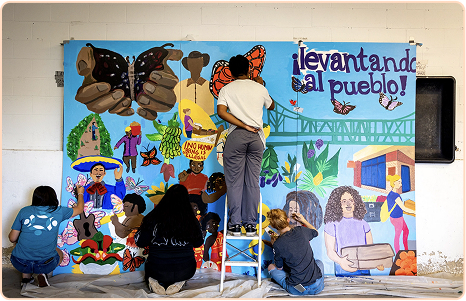 ¡levantando
al pueblo!
¡NO HUMAN
BEING IS
ILLEGAL